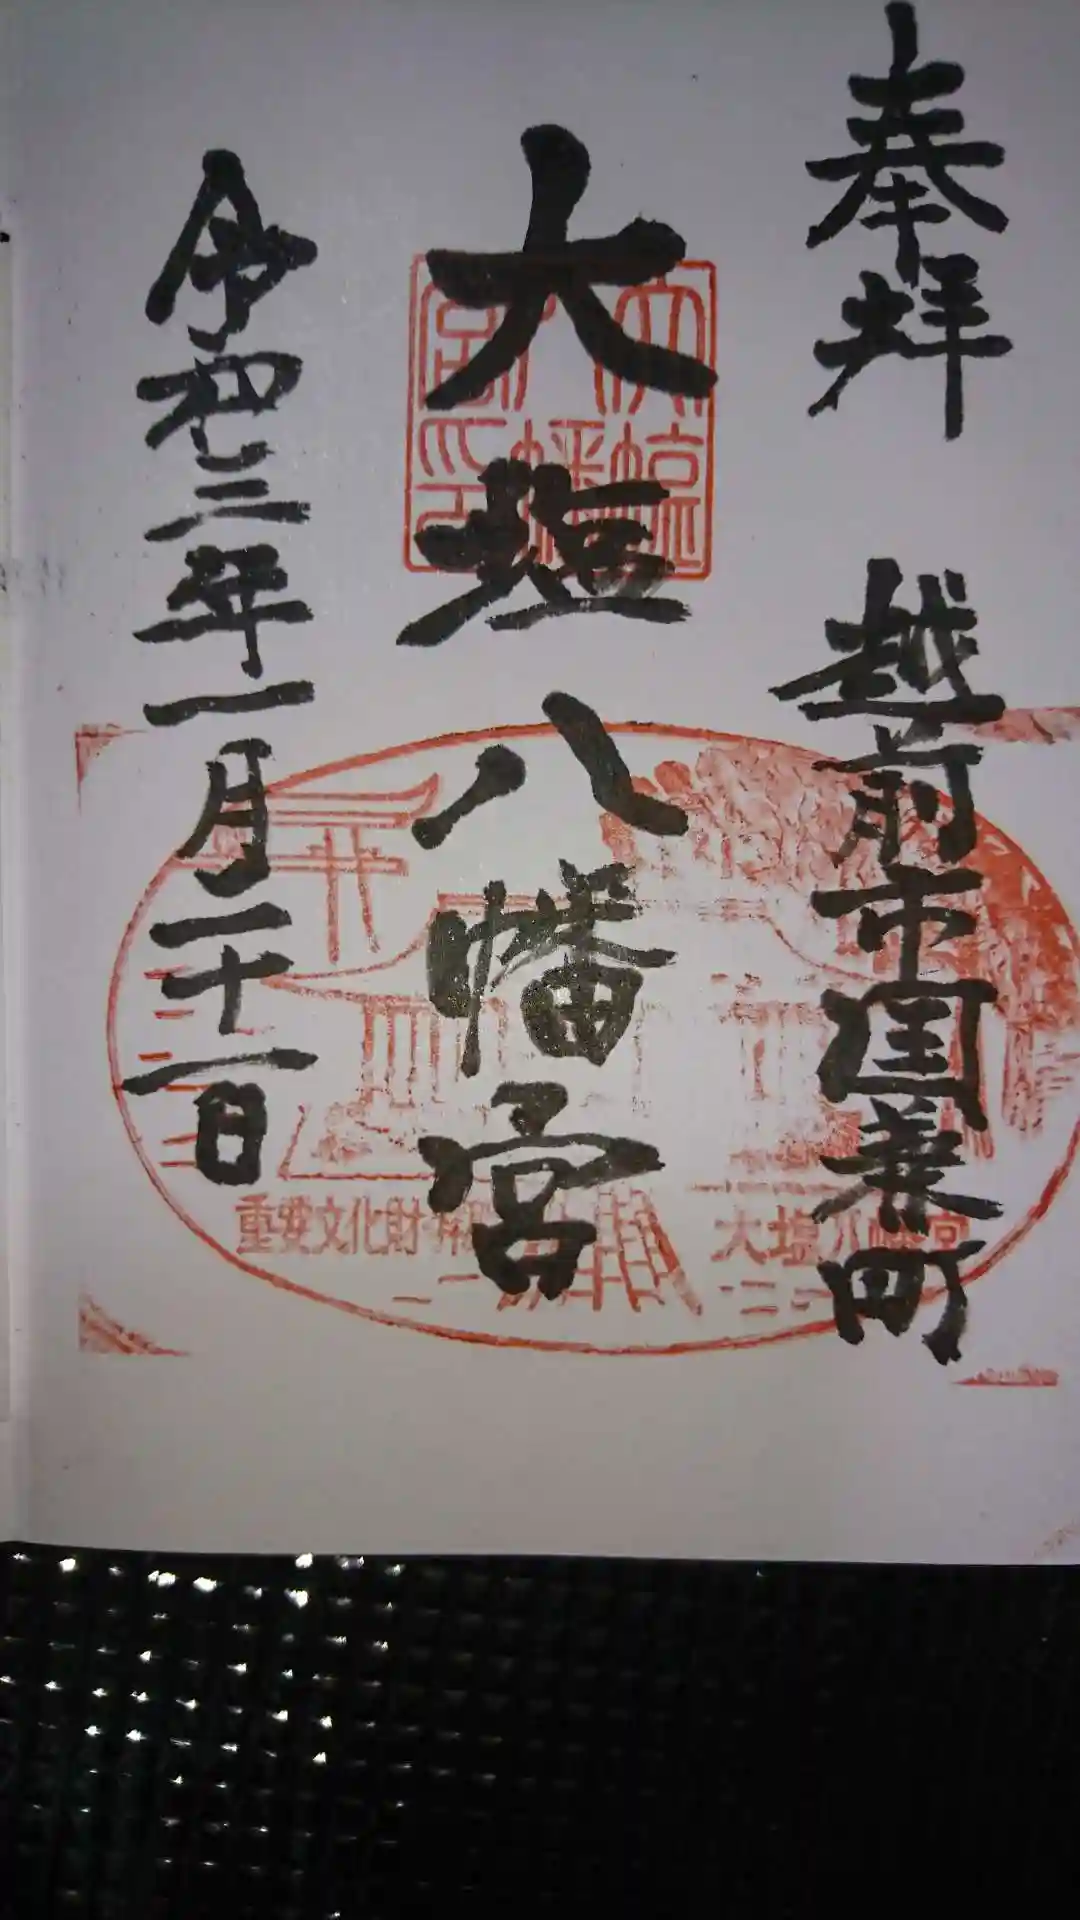 奉拝 越前市国兼町
大塩八幡宮
令和三年一月二十一日
大塩八幡宮印
重要文化財 拝殿
大塩八幡宮